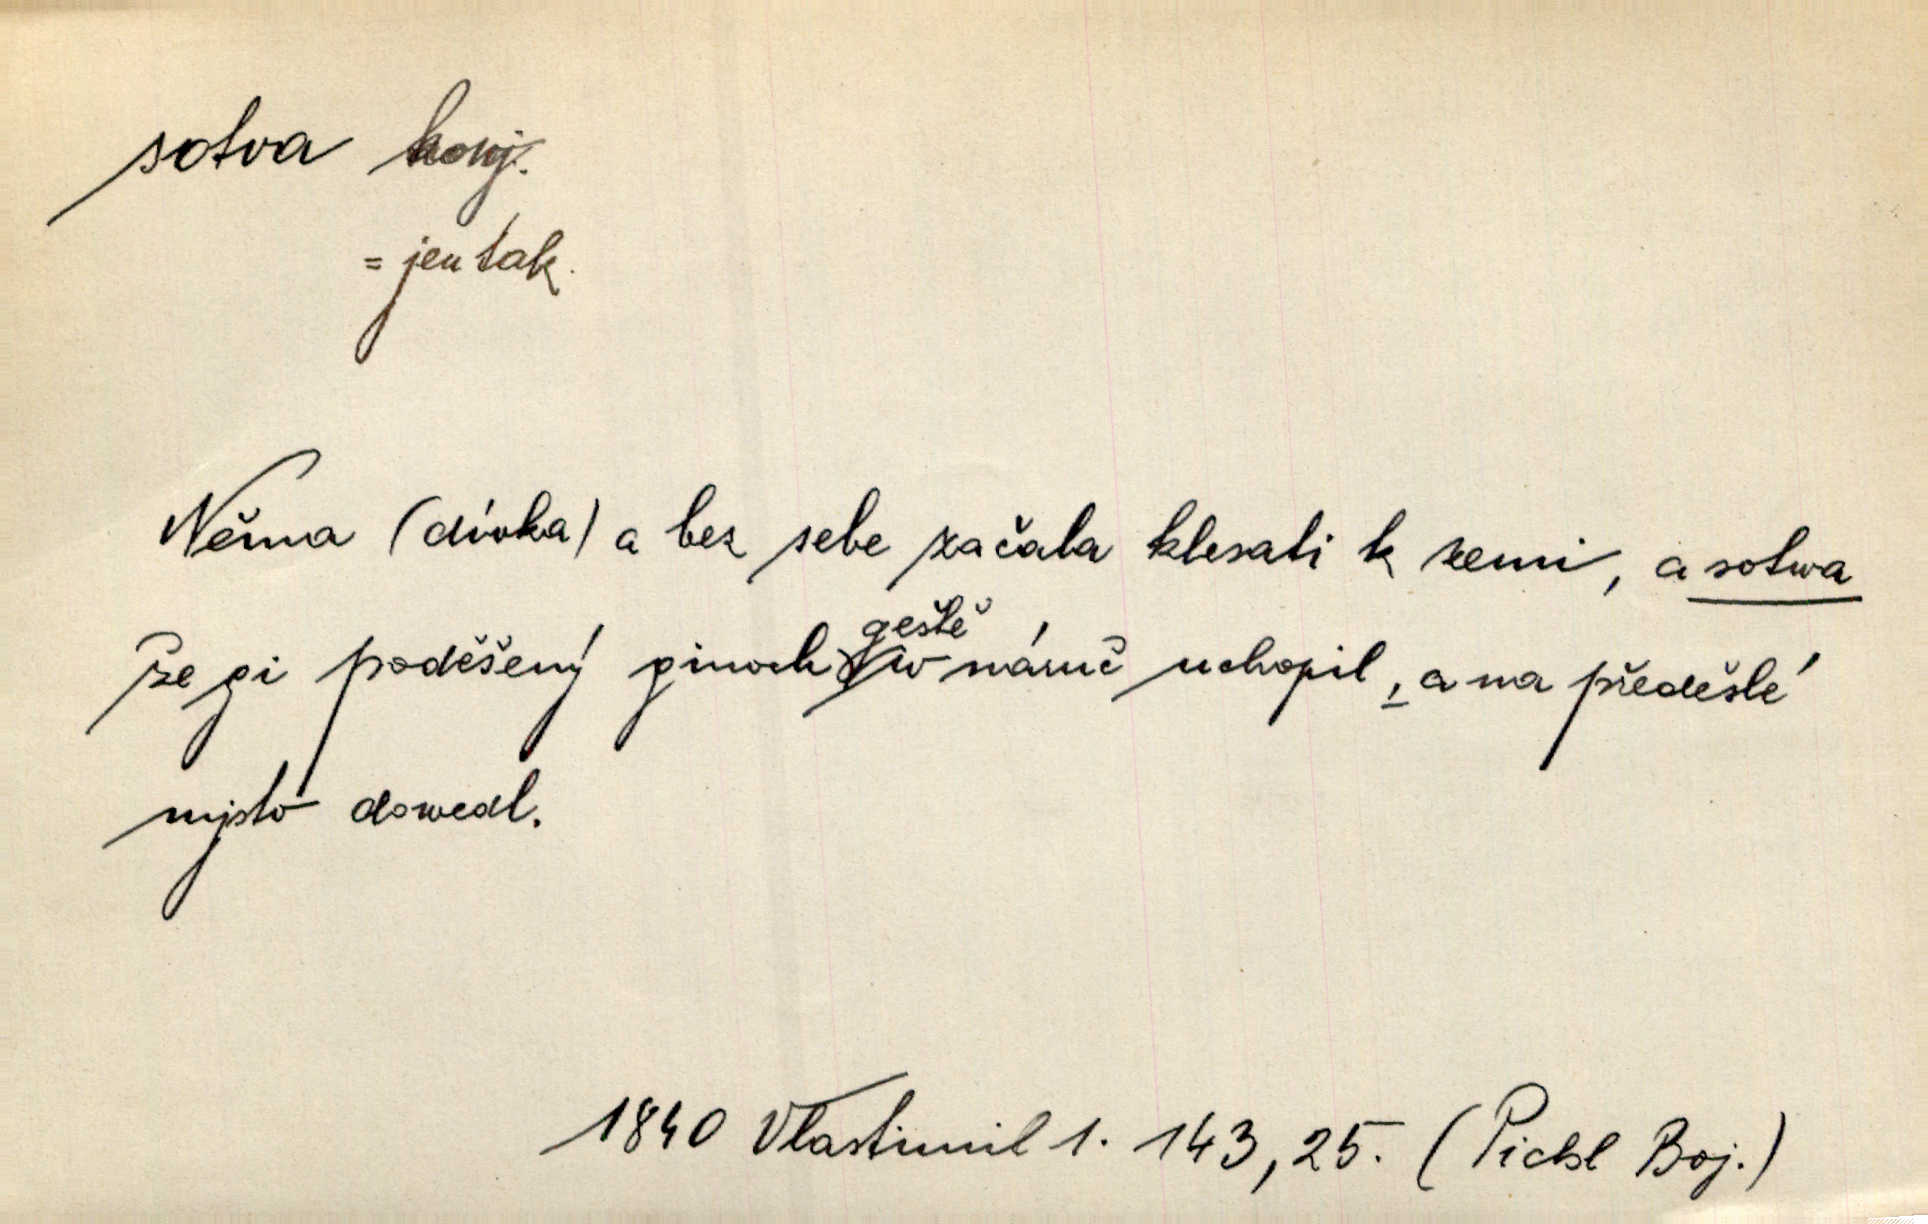 sotva konj.
= jen tak.
Něma (dívka) a bez sebe začala klesati k zemi, a sotwa
že gi poděšený ginoch geště w náruč uchopil, a na předešlé
mjsto dowedl.
1840 Vlastimil 1. 143, 25. (Pichl Boj.)